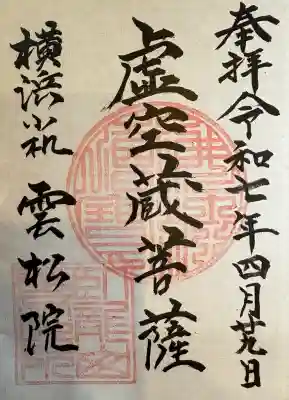 奉拝 令和七年四月廿九日
虚空蔵菩薩
横浜小机 雲松院